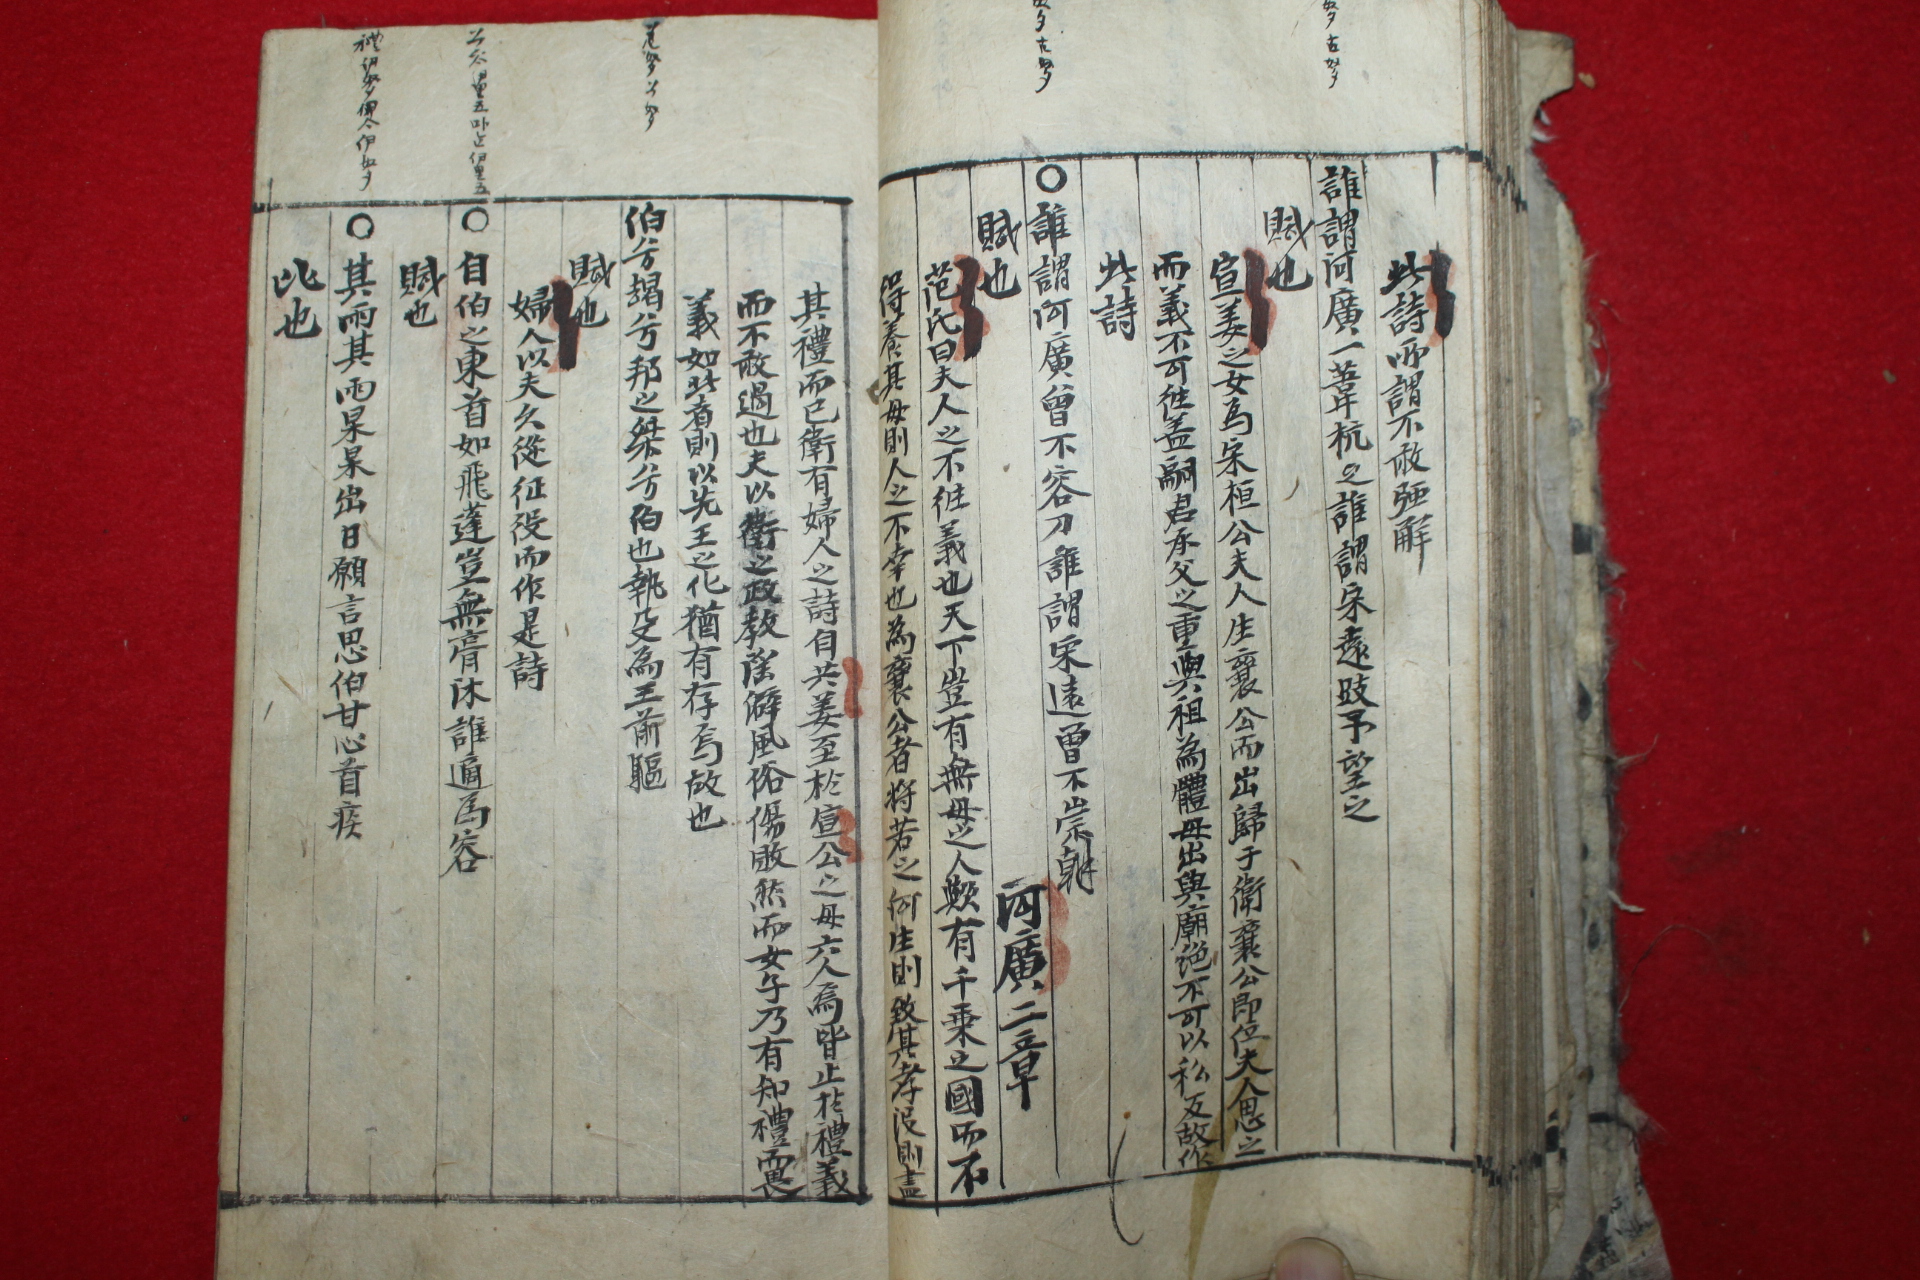 此詩所謂不敢强解
誰謂河廣一葦杭之誰謂宋遠跂予望之
賦也
宣姜之女爲宋桓公夫人生襄公而出歸于衛襄公卽位夫人思之
而義不可徃盖嗣君承父之重與祖為體母出與廟絶不可以私反故作
此詩
○誰謂河廣曾不容刀誰謂宋遠曾不崇朝
賦也 河廣二章
范氏曰夫人之不徃義也天下豈有無母之人歟有千乘之國而不
得養其母則人之不幸也為襄公者將若之何生則致其孝沒則盡
其禮而已衛有婦人之詩自共姜至於宣公之母六人焉皆止於禮義
而不敢過也夫以衛之政敎淫僻風俗傷敗然而女子乃有知禮畏
義如此者則以先王之化猶有存焉故也
伯兮朅兮邦之桀兮伯也執殳為王前驅
賦也
婦人以夫久從征役而作是詩
○自伯之東首如飛蓬豈無膏沐誰適爲容
賦也
○其雨其雨杲杲出日願言思伯甘心首疾
比也